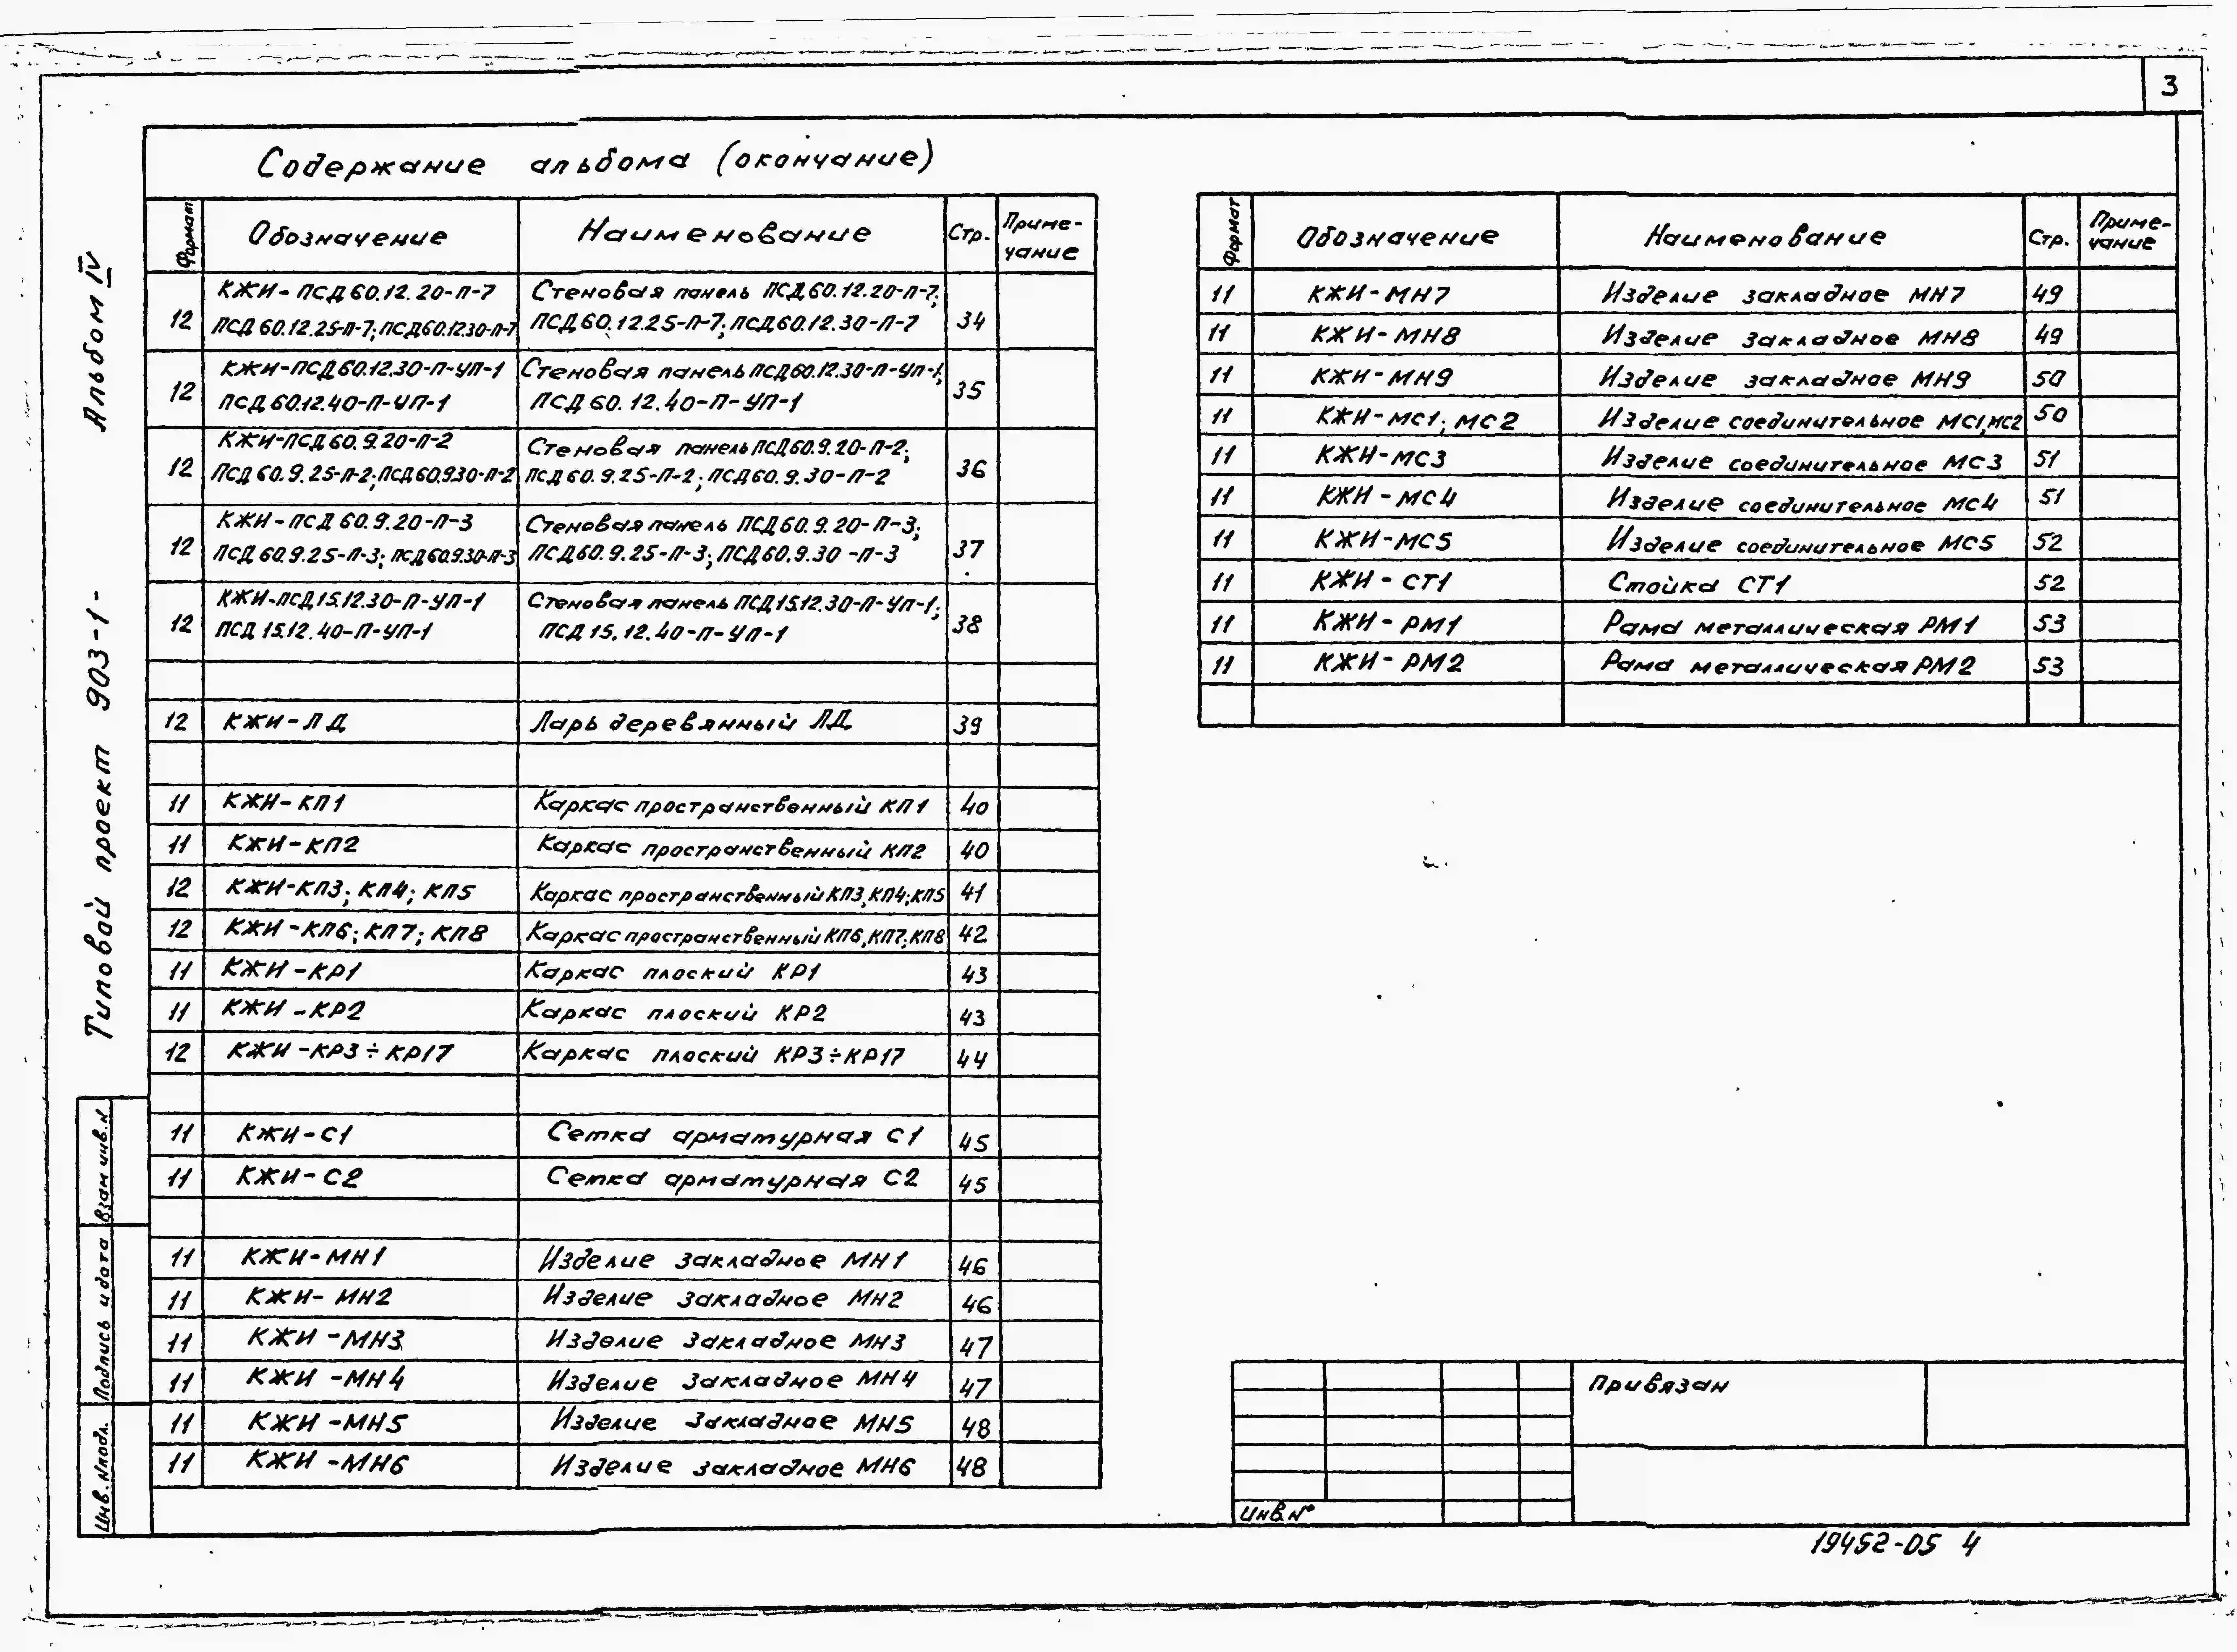 3
Альбом IV
Типовой проект 903-1-
Взам инв. N
Подпись и дата
Инв. N подл.
Содержание альбома (окончание)
Формат Обозначение Наименование Стр. Приме-
чание
КЖИ-ПСД60.12.20-П-7 Стеновая панель ПСД60.12.20-П-7;
12 ПСД60.12.25-П-7; ПСД60.12.30-П-7 ПСД60.12.25-П-7; ПСД60.12.30-П-7 34
КЖИ-ПСД60.12.30-П-УП-1 Стеновая панель ПСД60.12.30-П-УП-1;
12 ПСД60.12.40-П-УП-1 ПСД60.12.40-П-УП-1 35
КЖИ-ПСД60.9.20-П-2 Стеновая панель ПСД60.9.20-П-2;
12 ПСД60.9.25-П-2; ПСД60.9.30-П-2 ПСД60.9.25-П-2; ПСД60.9.30-П-2 36
КЖИ-ПСД60.9.20-П-3 Стеновая панель ПСД60.9.20-П-3;
12 ПСД60.9.25-П-3; ПСД60.9.30-П-3 ПСД60.9.25-П-3; ПСД60.9.30-П-3 37
КЖИ-ПСД15.12.30-П-УП-1 Стеновая панель ПСД15.12.30-П-УП-1;
12 ПСД15.12.40-П-УП-1 ПСД15.12.40-П-УП-1 38
12 КЖИ-ЛД Ларь деревянный ЛД 39
11 КЖИ-КП1 Каркас пространственный КП1 40
11 КЖИ-КП2 Каркас пространственный КП2 40
12 КЖИ-КП3; КП4; КП5 Каркас пространственный КП3, КП4; КП5 41
12 КЖИ-КП6; КП7; КП8 Каркас пространственный КП6, КП7; КП8 42
11 КЖИ-КР1 Каркас плоский КР1 43
11 КЖИ-КР2 Каркас плоский КР2 43
12 КЖИ-КР3÷КР17 Каркас плоский КР3÷КР17 44
11 КЖИ-С1 Сетка арматурная С1 45
11 КЖИ-С2 Сетка арматурная С2 45
11 КЖИ-МН1 Изделие закладное МН1 46
11 КЖИ-МН2 Изделие закладное МН2 46
11 КЖИ-МН3 Изделие закладное МН3 47
11 КЖИ-МН4 Изделие закладное МН4 47
11 КЖИ-МН5 Изделие закладное МН5 48
11 КЖИ-МН6 Изделие закладное МН6 48
Формат Обозначение Наименование Стр. Приме-
чание
11 КЖИ-МН7 Изделие закладное МН7 49
11 КЖИ-МН8 Изделие закладное МН8 49
11 КЖИ-МН9 Изделие закладное МН9 50
11 КЖИ-МС1; МС2 Изделие соединительное МС1, МС2 50
11 КЖИ-МС3 Изделие соединительное МС3 51
11 КЖИ-МС4 Изделие соединительное МС4 51
11 КЖИ-МС5 Изделие соединительное МС5 52
11 КЖИ-СТ1 Стойка СТ1 52
11 КЖИ-РМ1 Рама металлическая РМ1 53
11 КЖИ-РМ2 Рама металлическая РМ2 53
Привязан
Инв. №
19452-05 4